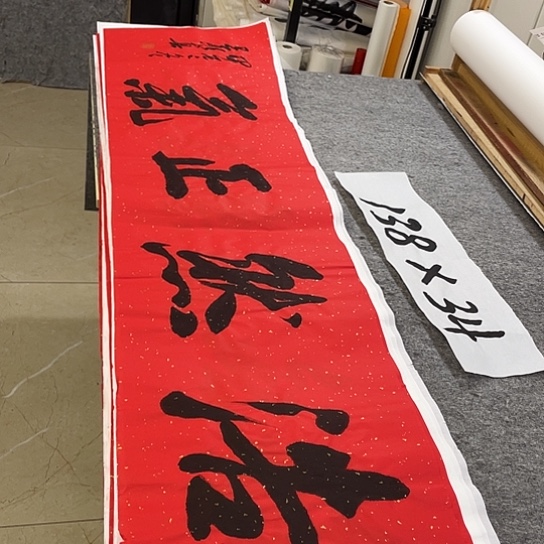 浩然正氣
138×34